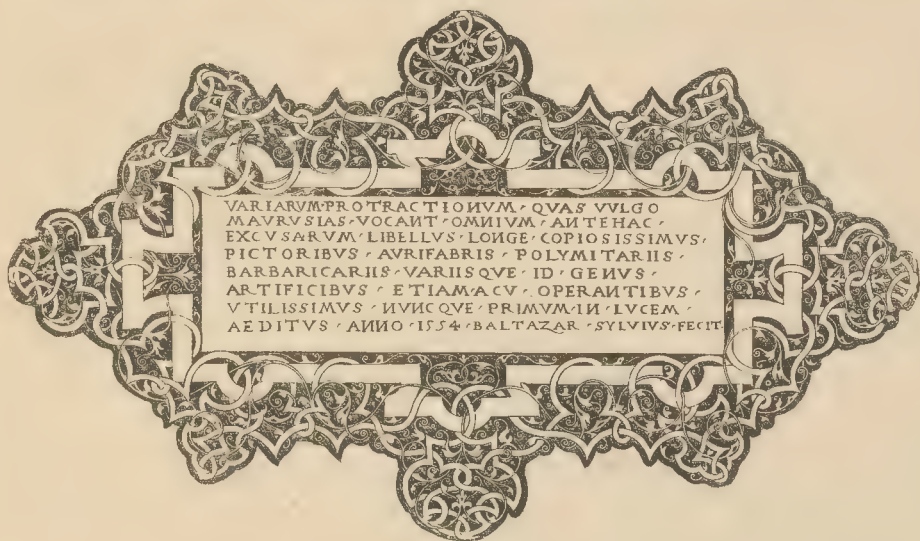 VARIARVM·PROTRACTIONVM·QVAS VVLGO
MAVRVSIAS·VOCANT·OMNIVM·ANTEHAC·
EXCVSARVM·LIBELLVS·LONGE·COPIOSISSIMVS·
PICTORIBVS·AVRIFABRIS·POLYMITARIIS·
BARBARICARIIS·VARIISQVE·ID·GENVS·
ARTIFICIBVS·ETIAM·ACV·OPERANTIBVS·
VTILISSIMVS·NVNCQVE·PRIMVM·IN·LVCEM·
AEDITVS·ANNO·1554·BALTAZAR·SYLVIVS·FECIT·